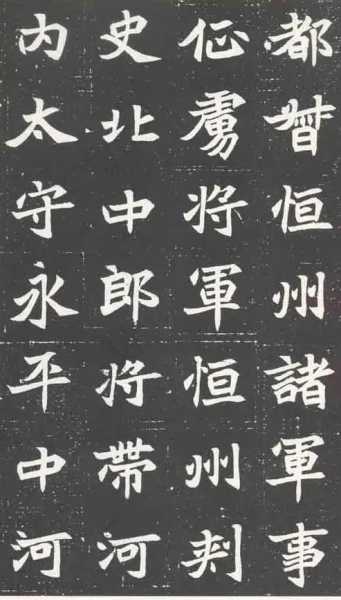 都督恒州諸軍事
征虜將軍恒州刺
史北中郎將帶河
内太守永平中河